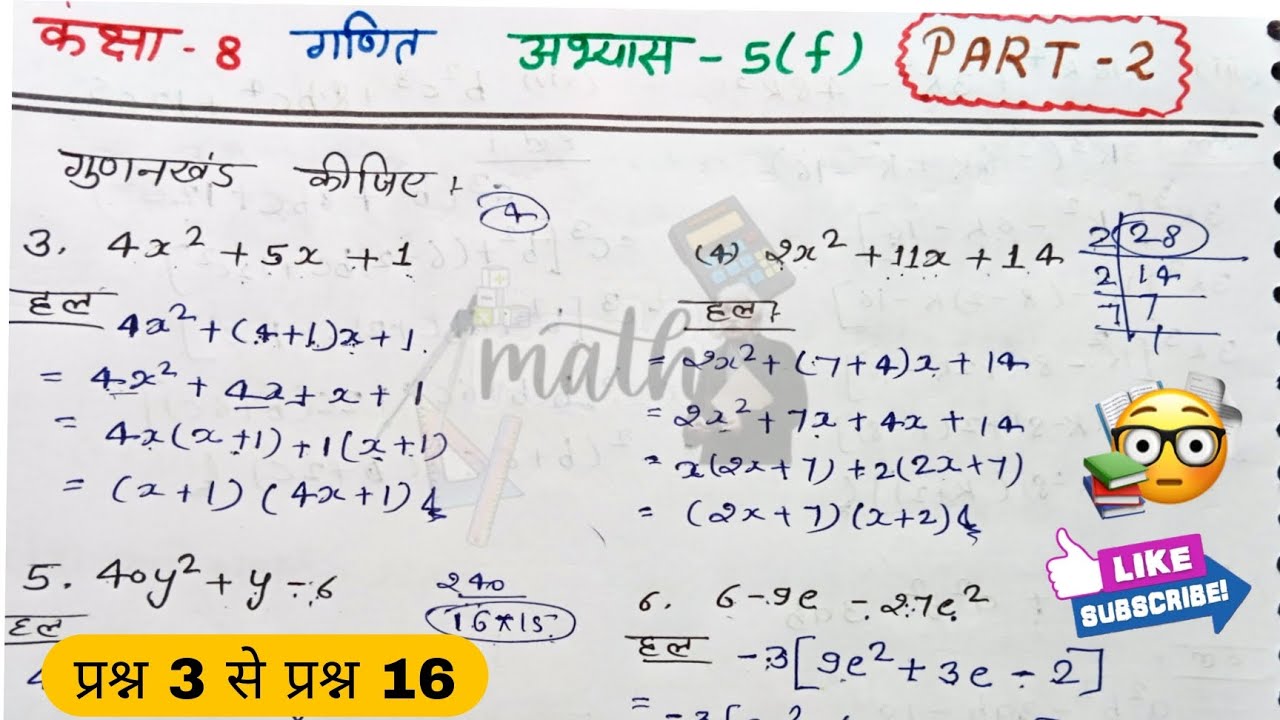 कक्षा - 8 गणित अभ्यास - 5(f) PART - 2
गुणनखंड कीजिए।
4
3. 4x² + 5x + 1
हल
4x² + (4+1)x + 1
= 4x² + 4x + x + 1
= 4x(x+1) + 1(x+1)
= (x+1) (4x+1)
(4) 2x² + 11x + 14
2 28
2 14
7 7
1
हल।
= 2x² + (7+4)x + 14
= 2x² + 7x + 4x + 14
= x(2x+7) + 2(2x+7)
= (2x+7) (x+2)
math
5. 40y² + y - 6
240
16*15
हल
6. 6 - 9e - 27e²
हल
-3[9e² + 3e - 2]
=
LIKE
SUBSCRIBE!
प्रश्न 3 से प्रश्न 16